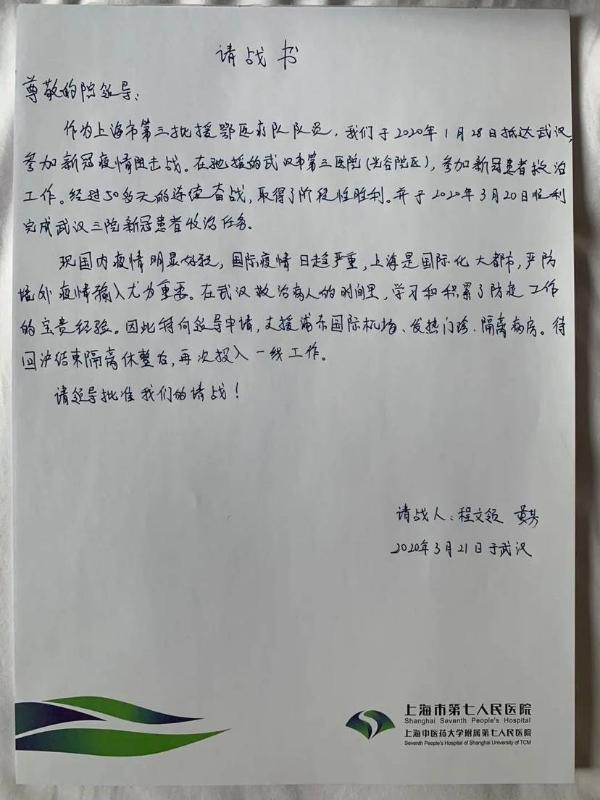 请战书
尊敬的院领导：
作为上海市第三批援鄂医疗队队员，我们于2020年1月28日抵达武汉，
参加新冠疫情阻击战。在驰援的武汉市第三医院（光谷院区），参加新冠患者救治
工作。经过50多天的连续奋战，取得了阶段性胜利。并于2020年3月20日胜利
完成武汉三院新冠患者收治任务。
现国内疫情明显好转，国际疫情日趋严重，上海是国际化大都市，严防
境外疫情输入尤为重要。在武汉救治病人的时间里，学习和积累了防疫工作
的宝贵经验。因此特向领导申请，支援浦东国际机场、发热门诊、隔离病房。待
回沪结束隔离休整后，再次投入一线工作。
请领导批准我们的请战！
请战人：程文 黄芳
2020年3月21日于武汉
上海市第七人民医院
Shanghai Seventh People's Hospital
上海中医药大学附属第七人民医院
Seventh People's Hospital of Shanghai University of TCM